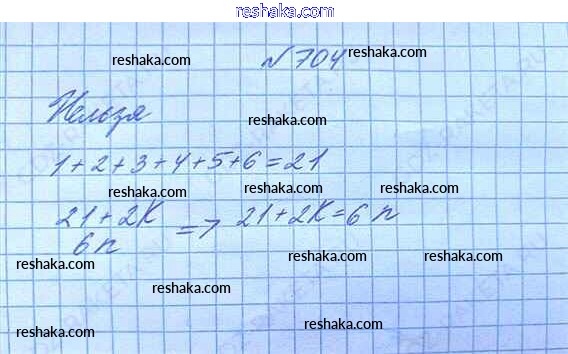 reshaka.com
№ 704
reshaka.com reshaka.com
Нельзя
reshaka.com
1+2+3+4+5+6=21
reshaka.com reshaka.com reshaka.com
21+2К
6n
=> 21+2К=6n
reshaka.com reshaka.com reshaka.com
reshaka.com reshaka.com
reshaka.com reshaka.com